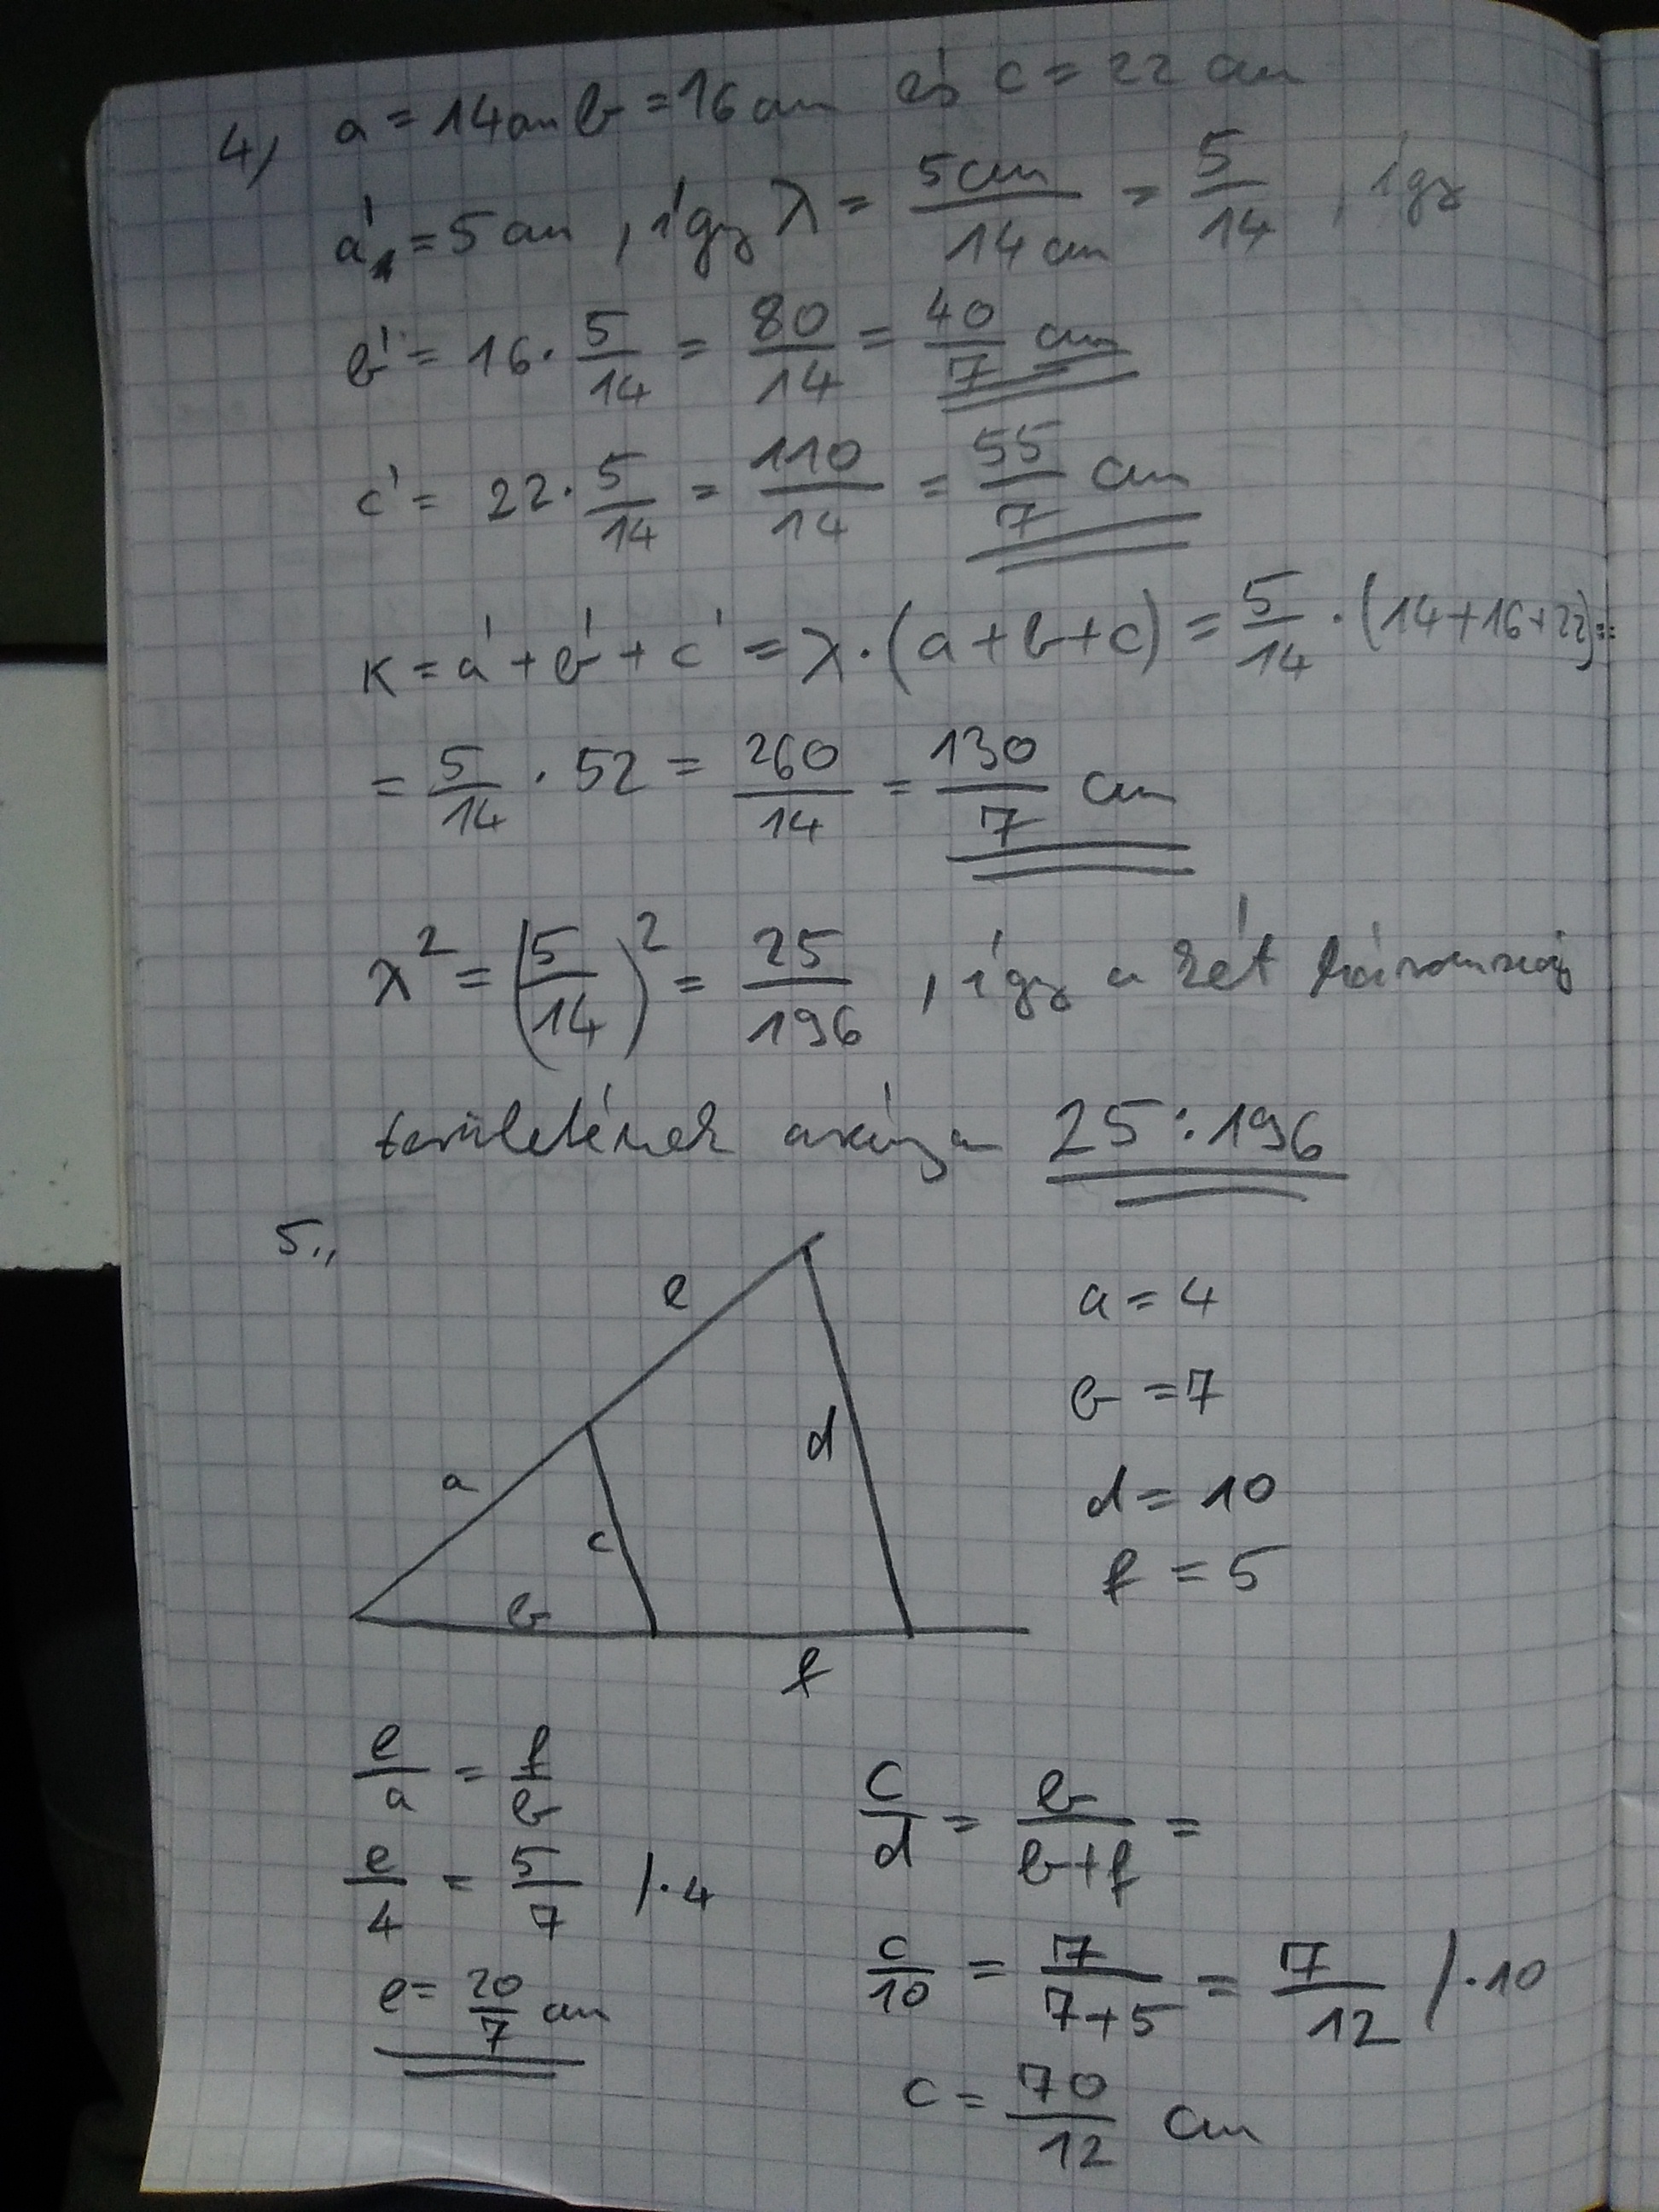 4, a = 14cm b = 16cm és c = 22 cm
a' = 5 cm, így λ = 5cm/14cm = 5/14, így
b' = 16 · 5/14 = 80/14 = 40/7 cm
c' = 22 · 5/14 = 110/14 = 55/7 cm
K = a' + b' + c' = λ · (a + b + c) = 5/14 · (14+16+22) =
= 5/14 · 52 = 260/14 = 130/7 cm
λ² = (5/14)² = 25/196, így a két háromszög
területének aránya 25 : 196
5.,
e
a
c
b
d
f
a = 4
b = 7
d = 10
f = 5
e/a = f/b
e/4 = 5/7 /·4
e = 20/7 cm
c/d = b/b+f =
c/10 = 7/7+5 = 7/12 /·10
c = 70/12 cm